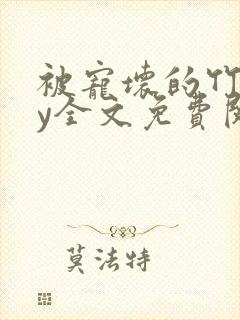 被寵壞的竹
y全文免費閱
莫法特